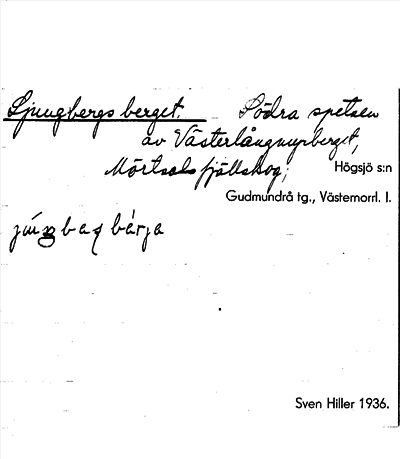 Ljungbergs berget. Södra spetsen
av Västerlångnyrberget,
Mörtsals fjällskog; Högsjö s:n
Gudmundrå tg., Västernorrl. l.
bärja
Sven Hiller 1936.